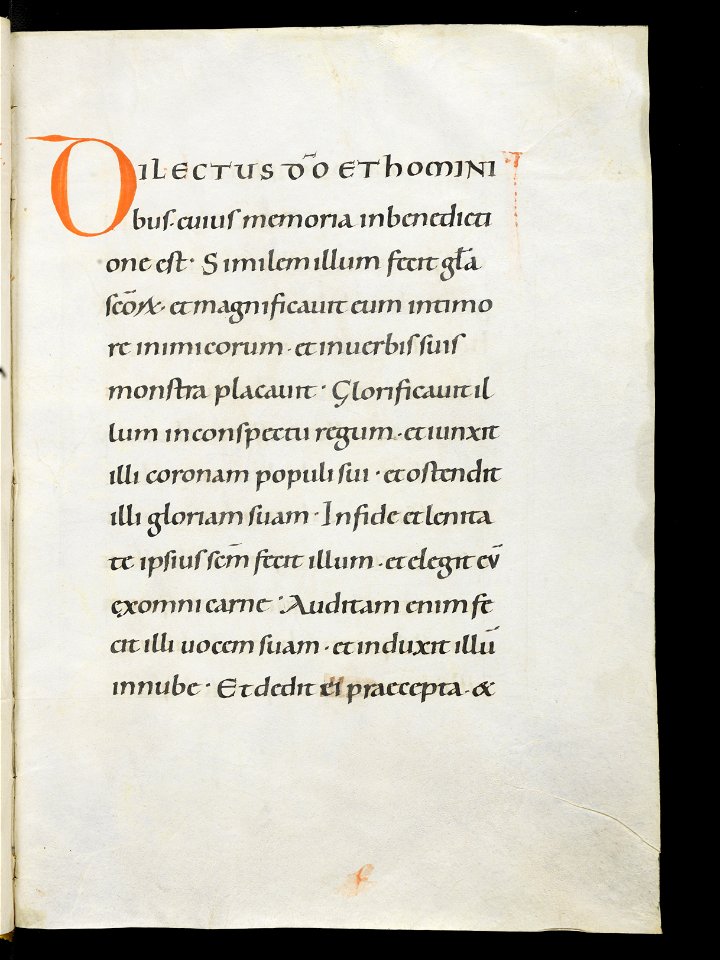 DILECTUS D̄O ET hOMINI
bus· cuius memoria inbenedicti
one est· Similem illum fecit gl̄a
sc̄oꝝ· et magnificauit eum intimo
re inimicorum· et inuerbis suis
monstra placauit· Glorificauit il
lum inconspectu regum· et iunxit
illi coronam populi sui· et ostendit
illi gloriam suam· Infide et lenita
te ipsius sc̄m fecit illum· et elegit eū
exomni carne· Auditam enim fe
cit illi uocem suam· et induxit illū
innube· Et dedit ei praecepta· &